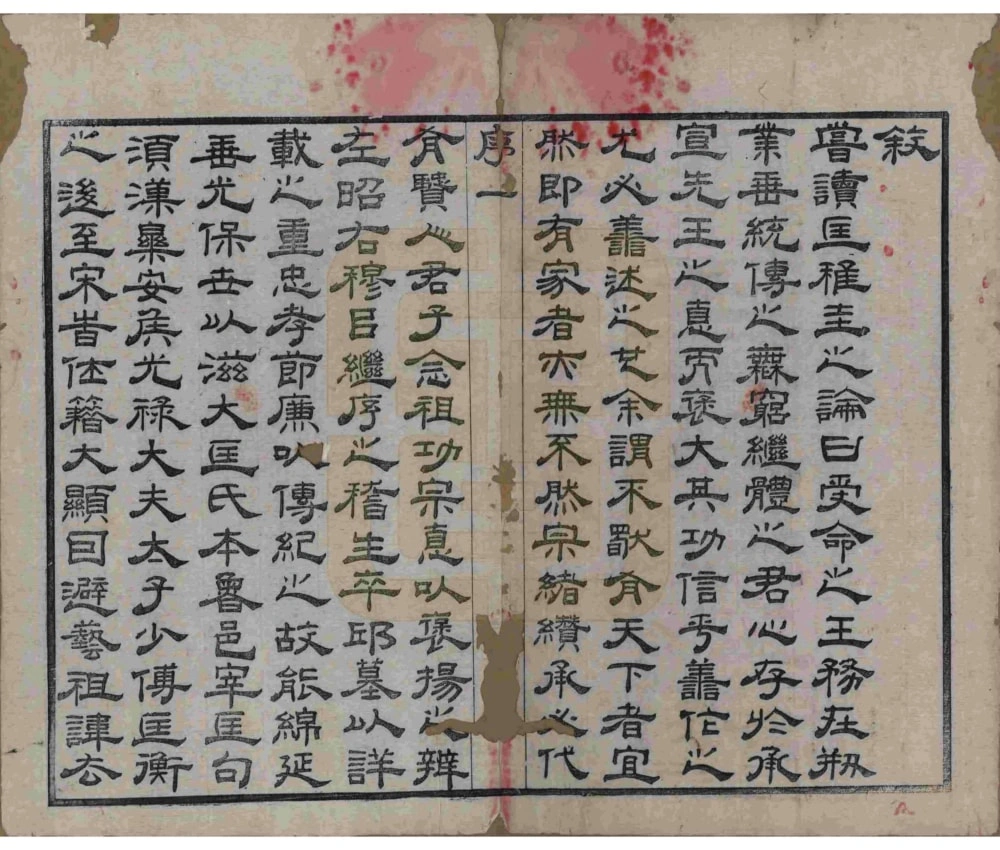 敘
嘗讀匡稚圭之論曰受命之王務在刱
業垂統傳之無窮繼體之君心存於承
宣先王之悳而褒大其功信乎善作之
尤必善述之也余謂不獨有天下者宜
然即有家者亦無不然宗緒纘承必代
序一
有賢心君子念祖功宗悳以褒揚之辨
左昭右穆㠯繼序之稽生卒邱墓以詳
載之重忠孝節廉以傳紀之故能綿延
垂光保世以滋大匡氏本魯邑宰匡句
須漢樂安侯光祿大夫太子少傅匡衡
之後至宋昔仕籍大顯因避藝祖諱去